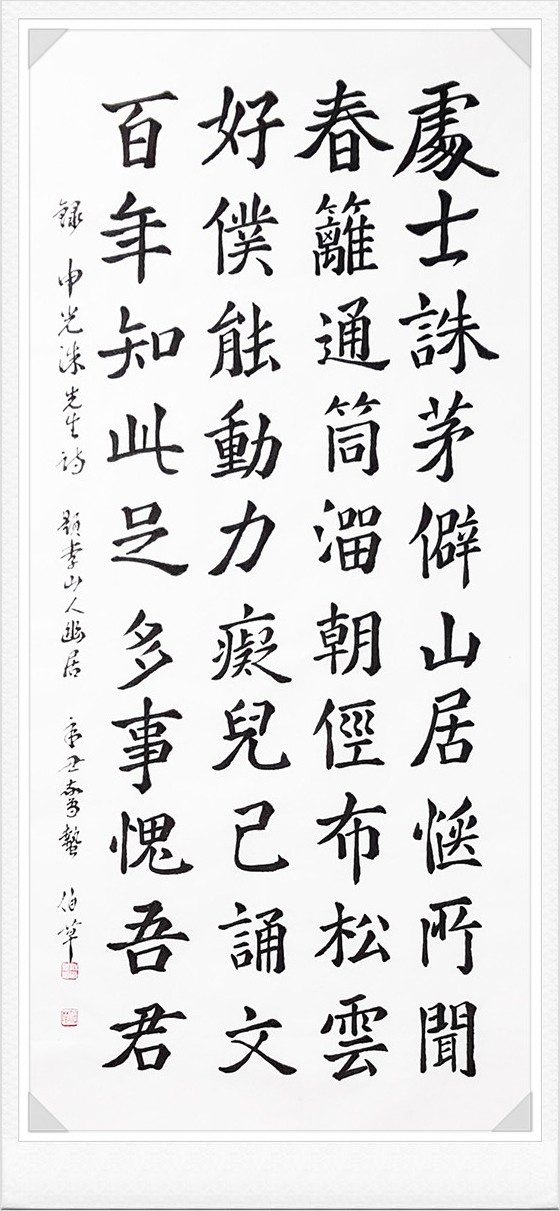 處士誅茅僻山居愜所聞
春籬通筒溜朝徑布松雲
好僕能動力癡兒已誦文
百年知此足多事愧吾君
錄 申光洙先生詩 題李山人幽居 辛丑驚蟄 伯草